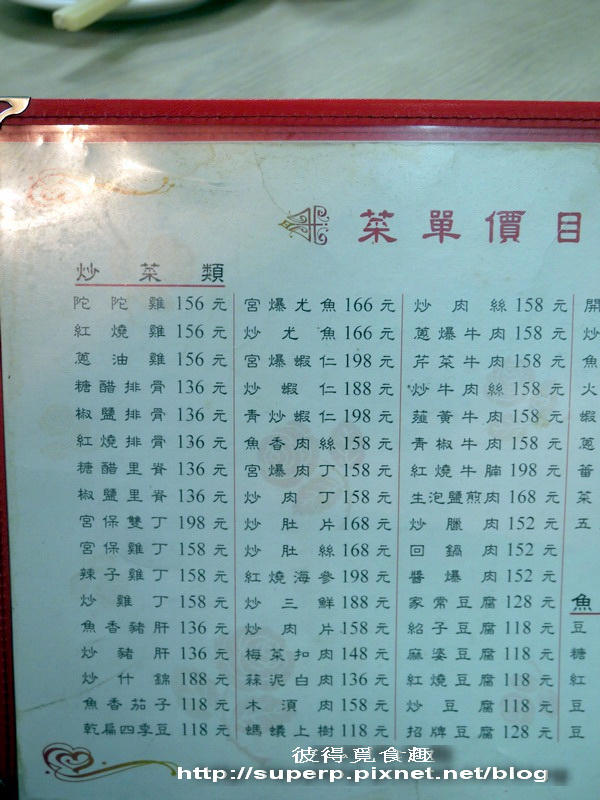 菜單價目
炒菜類
陀陀雞 156元
紅燒雞 156元
蔥油雞 156元
糖醋排骨 136元
椒鹽排骨 136元
紅燒排骨 136元
糖醋里脊 136元
椒鹽里脊 136元
宮保雙丁 198元
宮保雞丁 158元
辣子雞丁 158元
炒雞丁 158元
魚香豬肝 136元
炒豬肝 136元
炒什錦 188元
魚香茄子 118元
乾扁四季豆 118元
宮爆尤魚 166元
炒尤魚 166元
宮爆蝦仁 198元
炒蝦仁 188元
青炒蝦仁 198元
魚香肉絲 158元
宮爆肉丁 158元
炒肉丁 158元
炒肚片 168元
炒肚絲 168元
紅燒海參 198元
炒三鮮 188元
炒肉片 158元
梅菜扣肉 148元
蒜泥白肉 136元
木須肉 158元
螞蟻上樹 118元
炒肉絲 158元
蔥爆牛肉 158元
芹菜牛肉 158元
炒牛肉絲 158元
韮黃牛肉 158元
青椒牛肉 158元
紅燒牛腩 198元
生泡鹽煎肉 168元
炒臘肉 152元
回鍋肉 152元
醬爆肉 152元
家常豆腐 128元
紹子豆腐 118元
麻婆豆腐 118元
紅燒豆腐 118元
炒豆腐 118元
招牌豆腐 128元
開
炒
魚
火
蝦
蔥
蕃
菜
五
魚
豆
糖
紅
豆
豆
彼得覓食趣
http://superp.pixnet.net/blog